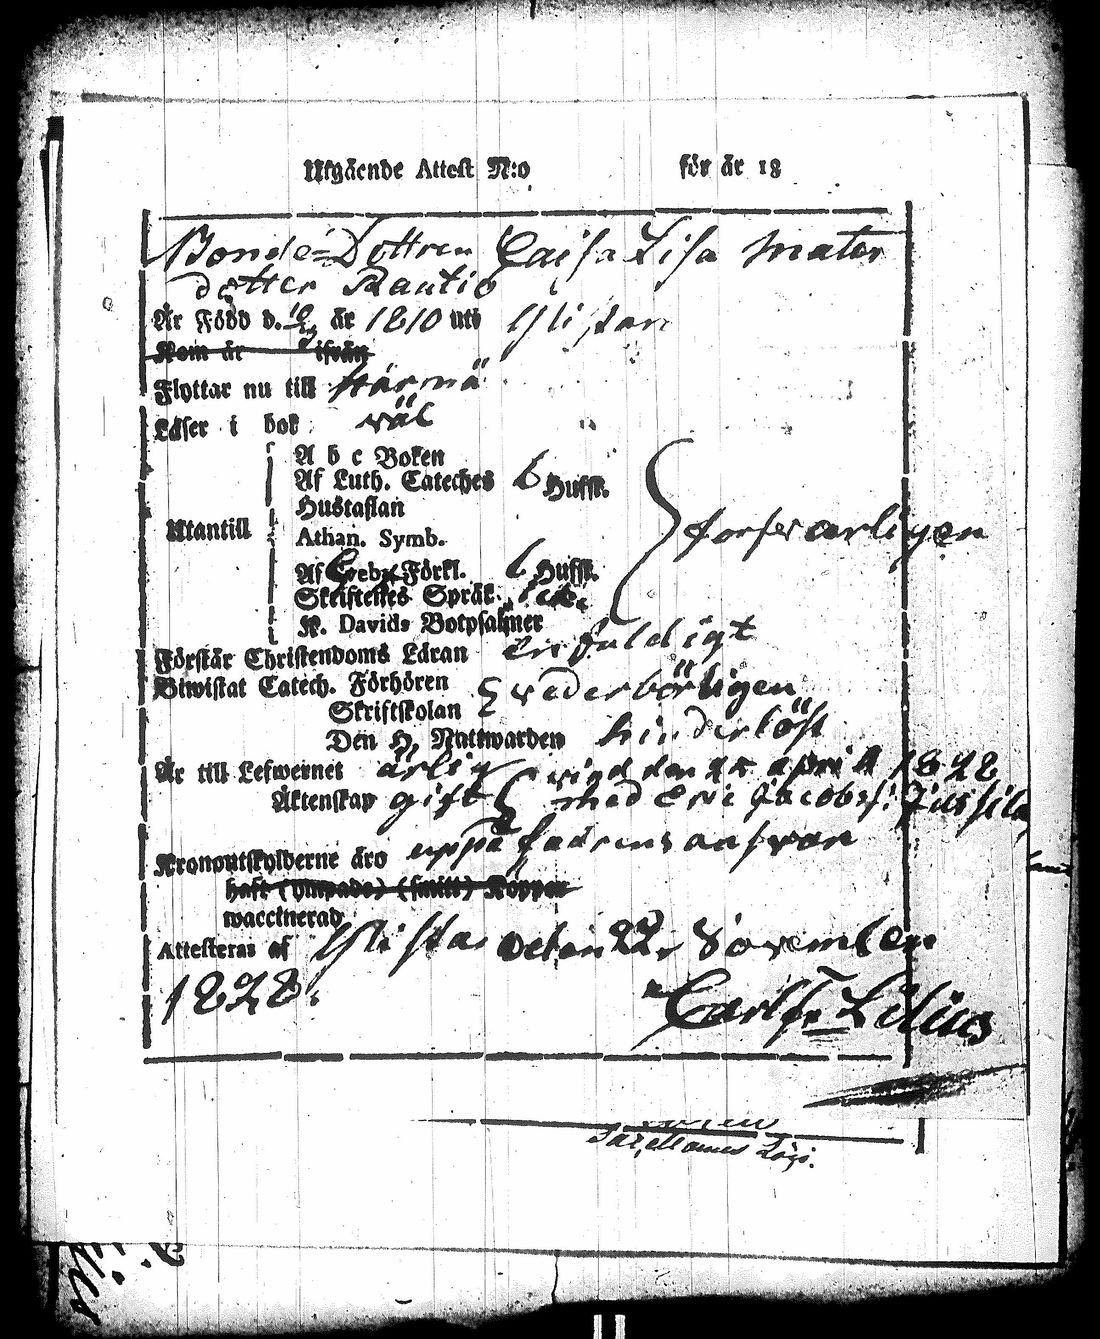 Utgående Attest N:o för år 18
Bonde=Dottren Caisa Lisa Mats
dotter Rautio
Är Född d. 10/ år 1810 uti Ylistaro
Kom år ifrån
Flyttar nu till Härmä
Läser i bok wäl
A b c Boken
Af Luth. Cateches 6 Hufst.
Hustaflan
Utantill försvarligen
Athan. Symb.
Af Förkl. 6 Hufst.
Skriftenes Språk
K. Davids Botpsalmer
Förstår Christendoms Läran enfaldigt
Biwistat Catech. Förhören wederbörligen
Skriftskolan
Den H. Nattwarden hinderlöst
Är till Lefwernet ärlig wigd den april 1828
Äktenskap gift med Eric Jacobss:
Kronoutskylderne äro uppå fadrens answar
haft (ympade) (smitt) Koppor
waccinerad
Attesteras af Ylistaro den 22 November
1828.
Carl Fr Lilius